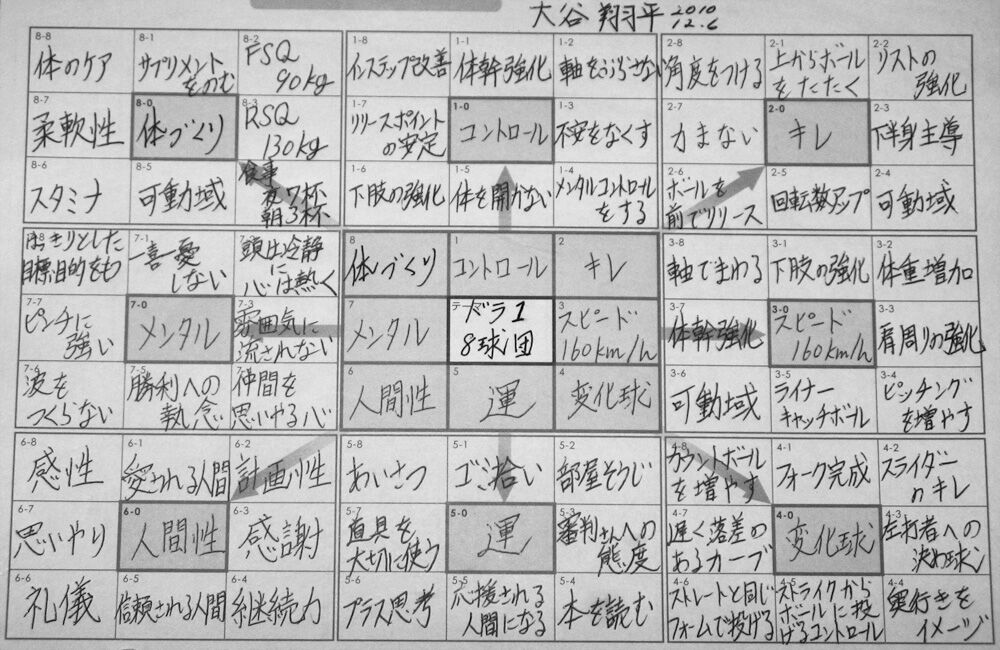 大谷 翔平 2010
12.6
8-8
体のケア
8-1
サプリメント
をのむ
8-2
FSQ
90kg
1-8
インステップ改善
1-1
体幹強化
1-2
軸をぶらさない
2-8
角度をつける
2-1
上からボール
をたたく
2-2
リストの
強化
8-7
柔軟性
8-0
体づくり
8-3
RSQ
130kg
1-7
リリースポイント
の安定
1-0
コントロール
1-3
不安をなくす
2-7
力まない
2-0
キレ
2-3
下半身主導
8-6
スタミナ
8-5
可動域
食事
夜7杯
朝3杯
1-6
下肢の強化
1-5
体を開かない
1-4
メンタルコントロール
をする
2-6
ボールを
前でリリース
2-5
回転数アップ
2-4
可動域
はっきりとした
目標目的をも
7-1
一喜一憂
しない
頭は冷静
に
心は熱く
8
体づくり
1
コントロール
2
キレ
3-8
軸でまわる
3-1
下肢の強化
3-2
体重増加
7-7
ピンチに
強い
7-0
メンタル
7-3
雰囲気に
流されない
7
メンタル
テーマ
ドラ1
8球団
3
スピード
160km/h
3-7
体幹強化
3-0
スピード
160km/h
3-3
肩周りの強化
7-6
波を
つくらない
7-5
勝利への
執念
7-4
仲間を
思いやる心
6
人間性
5
運
4
変化球
3-6
可動域
3-5
ライナー
キャッチボール
3-4
ピッチング
を増やす
6-8
感性
6-1
愛される人間
6-2
計画性
5-8
あいさつ
5-1
ゴミ拾い
5-2
部屋そうじ
4-8
カウントボール
を増やす
4-1
フォーク完成
4-2
スライダー
のキレ
6-7
思いやり
6-0
人間性
6-3
感謝
5-7
道具を
大切に使う
5-0
運
5-3
審判さんへの
態度
4-7
遅く落差の
あるカーブ
4-0
変化球
4-3
左打者への
決め球
6-6
礼儀
6-5
信頼される人間
6-4
継続力
5-6
プラス思考
5-5
応援される
人間になる
5-4
本を読む
4-6
ストレートと同じ
フォームで投げる
4-5
ストライクから
ボールに投
げるコントロール
4-4
奥行きを
イメージ